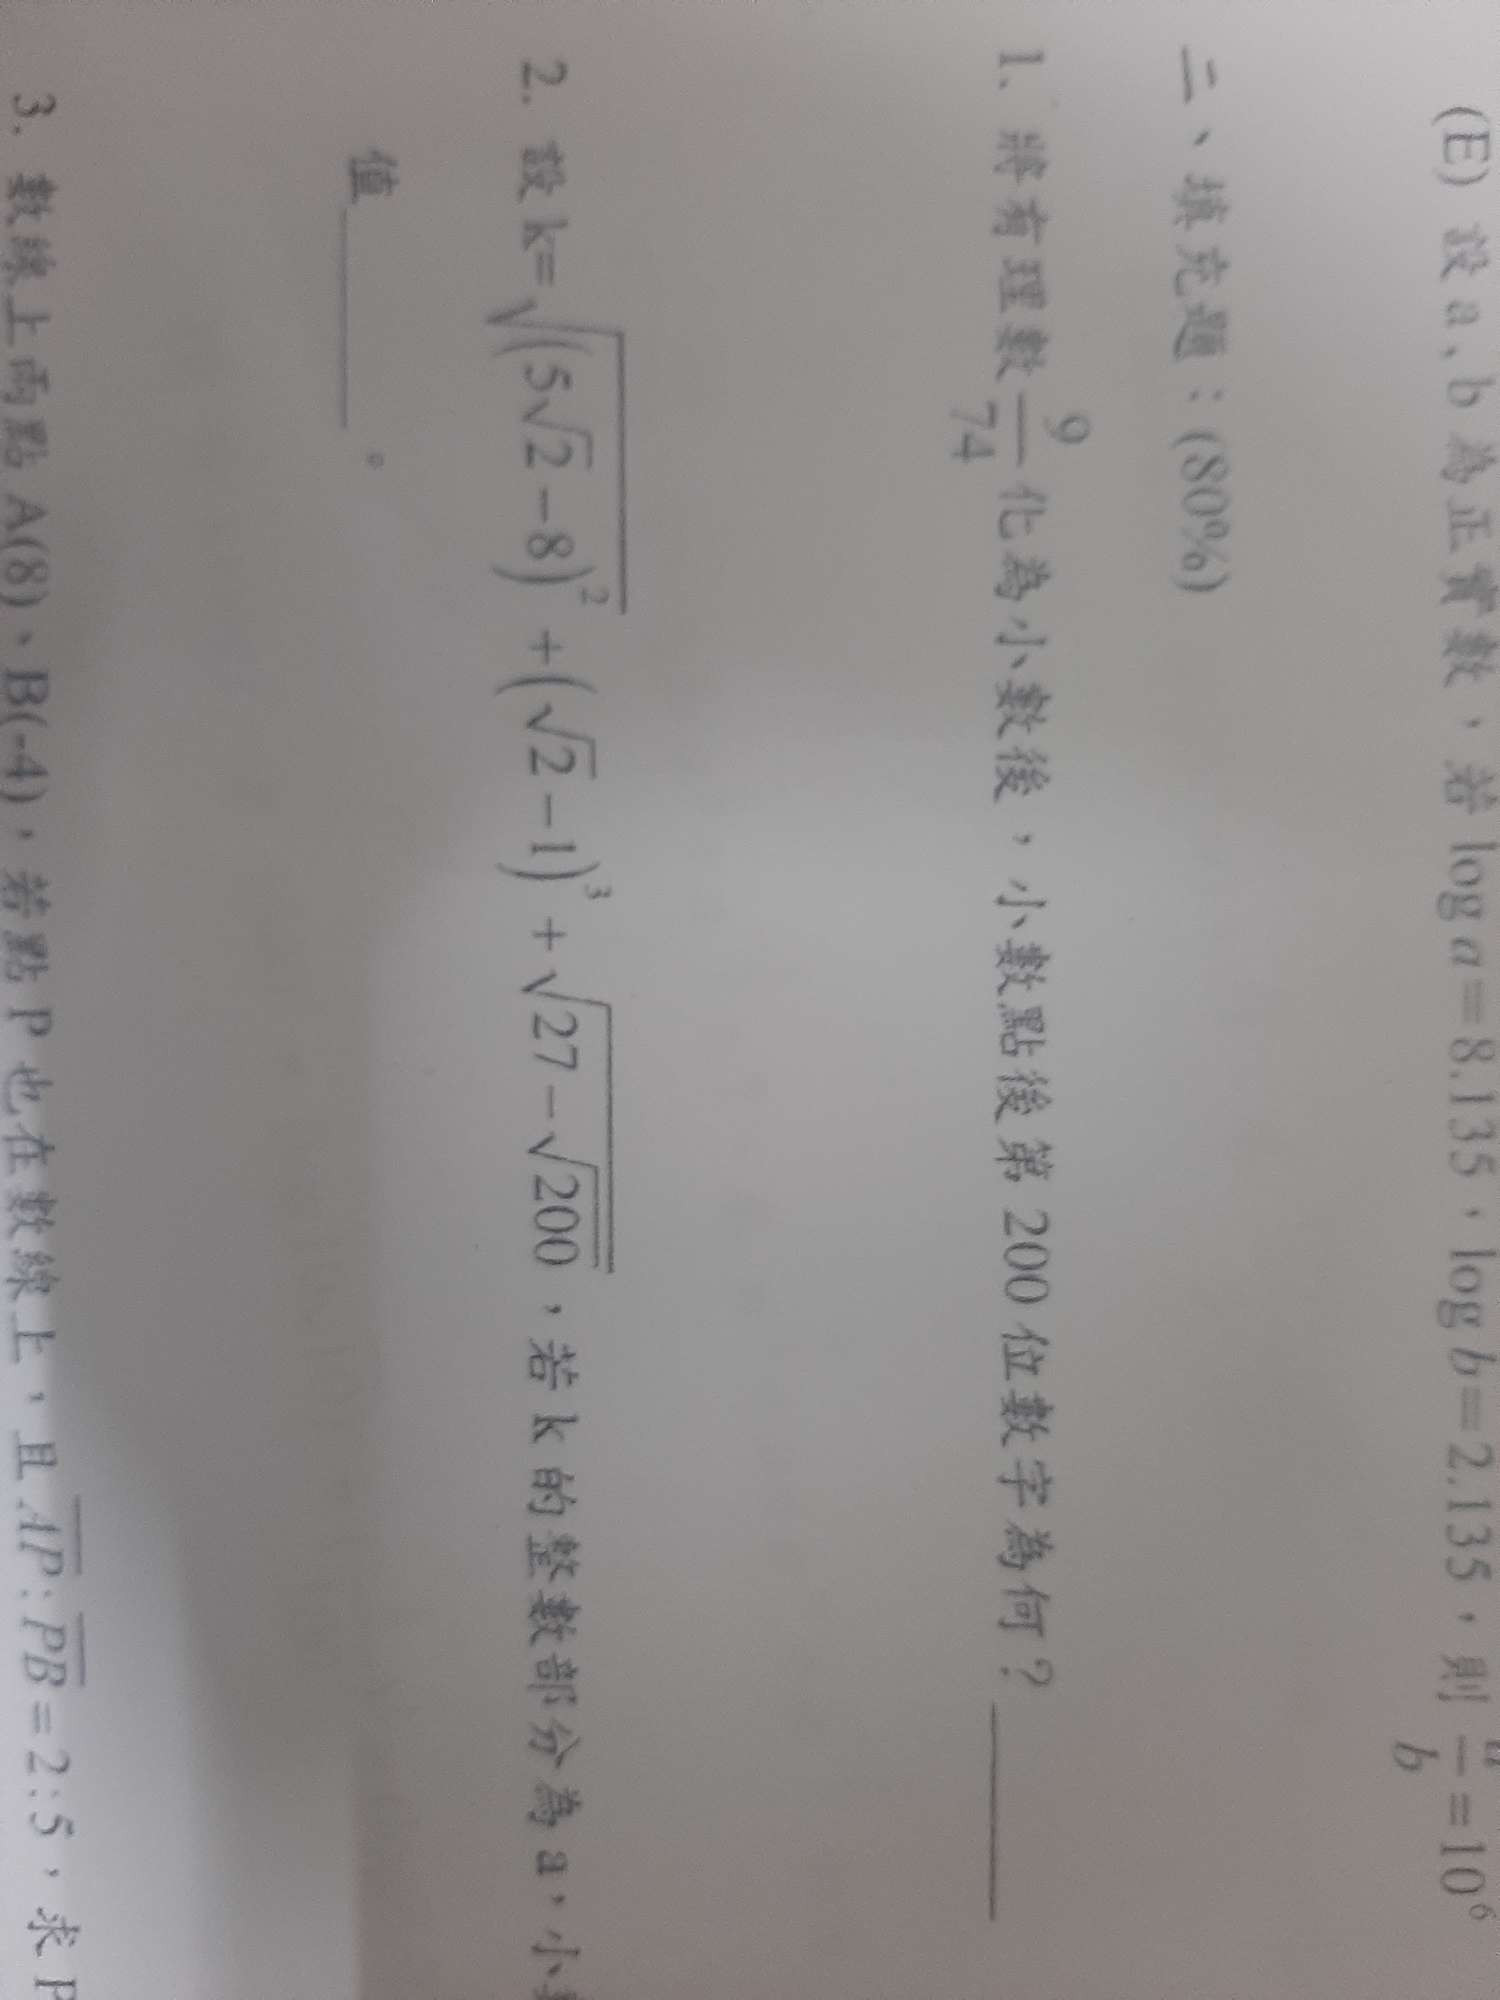 (E) 設 a、b 為正實數，若 log a=8.135，log b=2.135，則 a/b =10⁶
二、填充題：(80%)
1. 將有理數 9/74 化為小數後，小數點後第 200 位數字為何？
2. 設 k=√((5√2－8)²)+(√2－1)³+√(27－√200)，若 k 的整數部分為 a，小
值 。
3. 數線上兩點 A(8)、B(-4)，若點 P 也在數線上，且 AP:PB=2:5，求 P